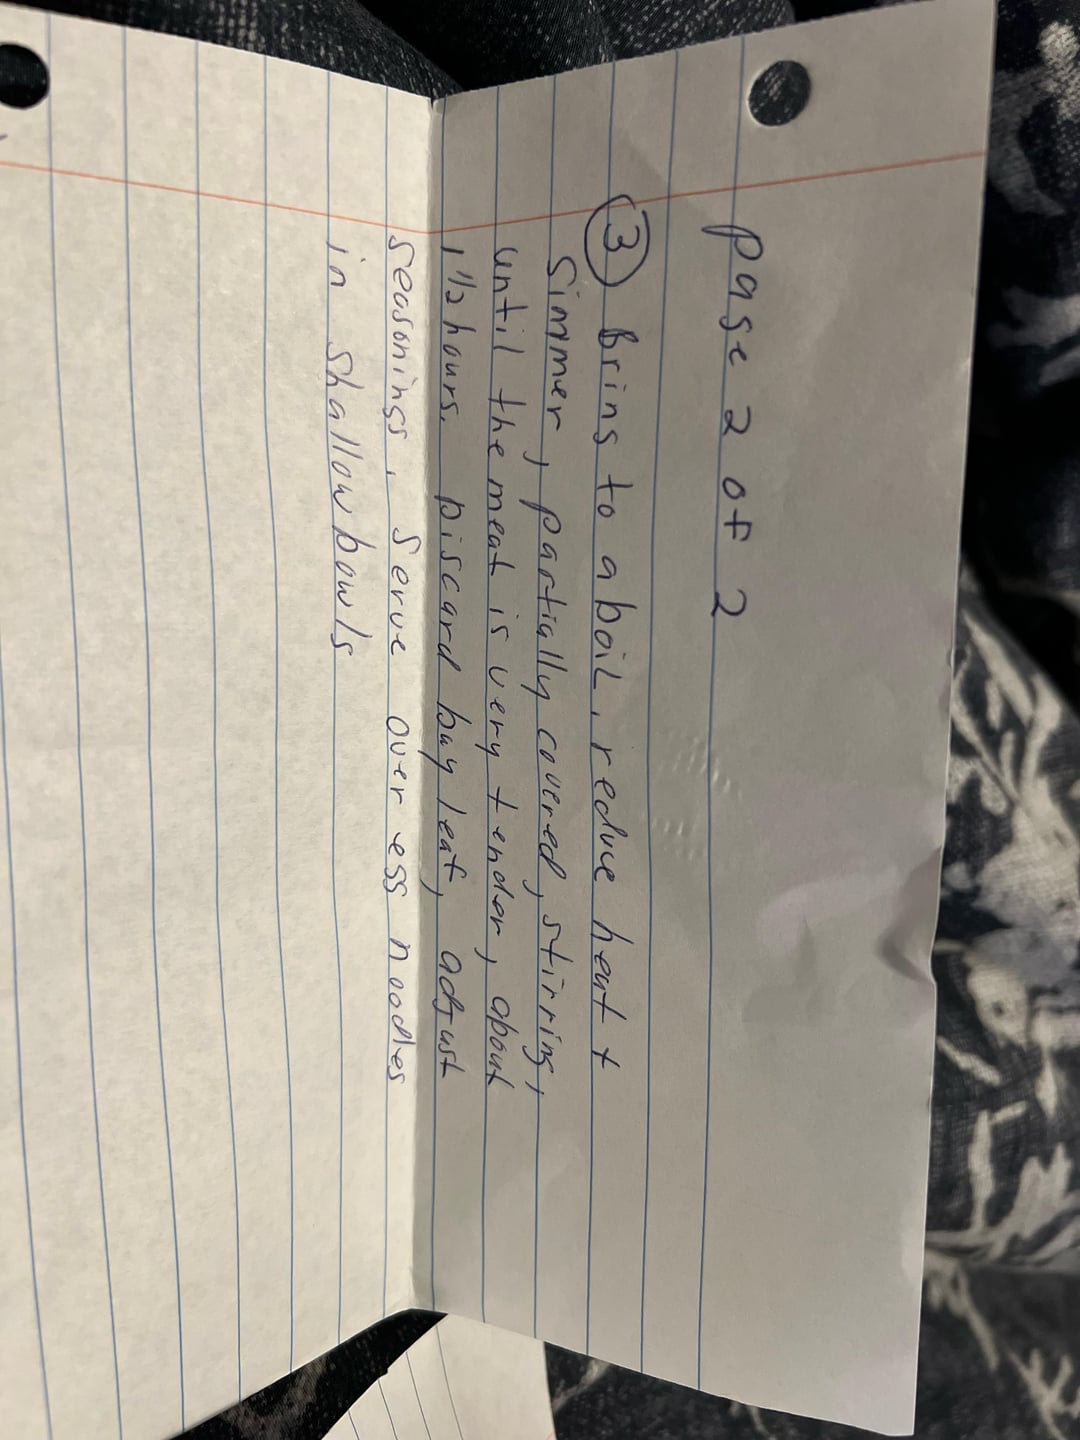 page 2 of 2
③ bring to a boil, reduce heat +
simmer, partially covered, stirring,
until the meat is very tender, about
1 1/2 hours. Discard bay leaf, adjust
seasonings. Serve over egg noodles
in shallow bowls